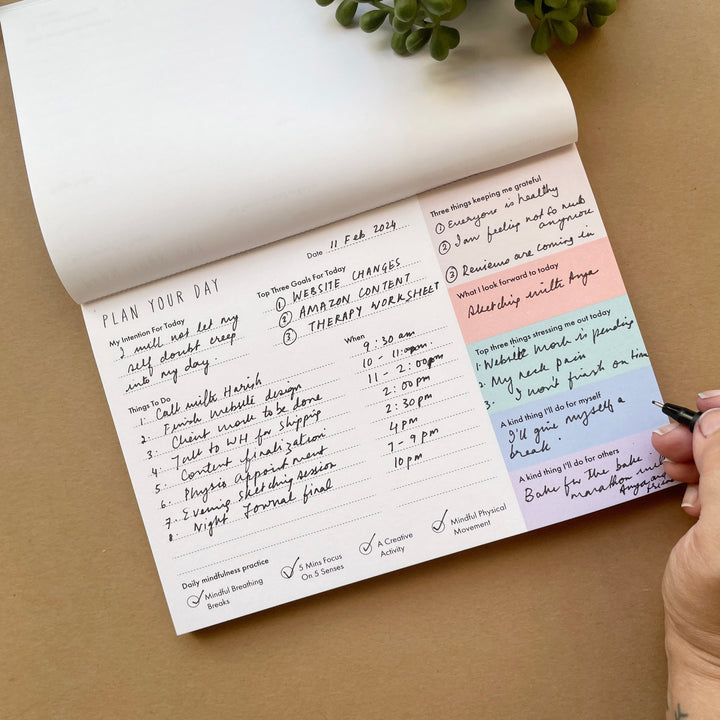 PLAN YOUR DAY
Date 11 Feb 2024
My Intention For Today
I will not let my
self doubt creep
into my day.
Top Three Goals For Today
① WEBSITE CHANGES
② AMAZON CONTENT
③ THERAPY WORKSHEET
Things To Do
1. Call with Harish
2. Finish Website design
3. Client work to be done
4. Talk to WH for shippig
5. Content finalization
6. Physio Appointment
7. Evening sketching session
8. Night Journal final
When
9:30 am
10 - 11:00am
11 - 2:00pm
2:00 pm
2:30 pm
4 pm
7 - 9 pm
10 pm
Daily mindfulness practice
Mindful Breathing
Breaks
5 Mins Focus
On 5 Senses
A Creative
Activity
Mindful Physical
Movement
Three things keeping me grateful
① Everyone is healthy
② I am feeling not so
anymore
③ Reviews are coming in
What I look forward to today
Sketching with Anya
Top three things stressing me out today
1. Website work is pending
2. My neck pain
3. I won't finish on time
A kind thing I'll do for myself
I'll give myself a
break.
A kind thing I'll do for others
Bake for the bake
marathon with
Anya and
friends